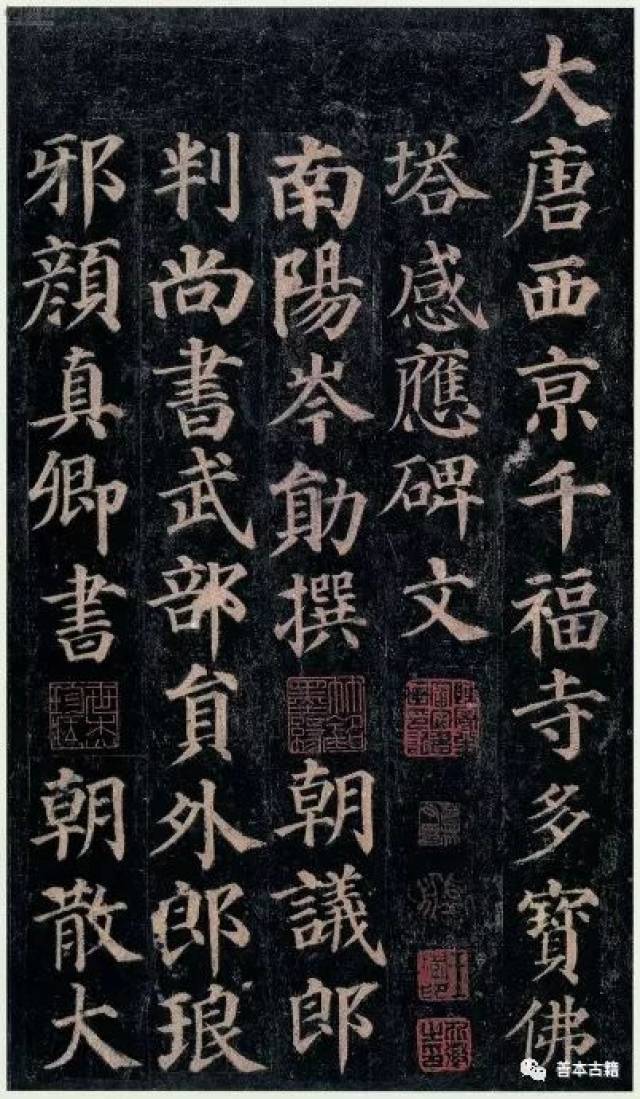 大唐西京千福寺多寶佛
塔感應碑文
南陽岑勛撰 朝議郎
判尚書武部貟外郎琅
邪顏真卿書 朝散大
善本古籍